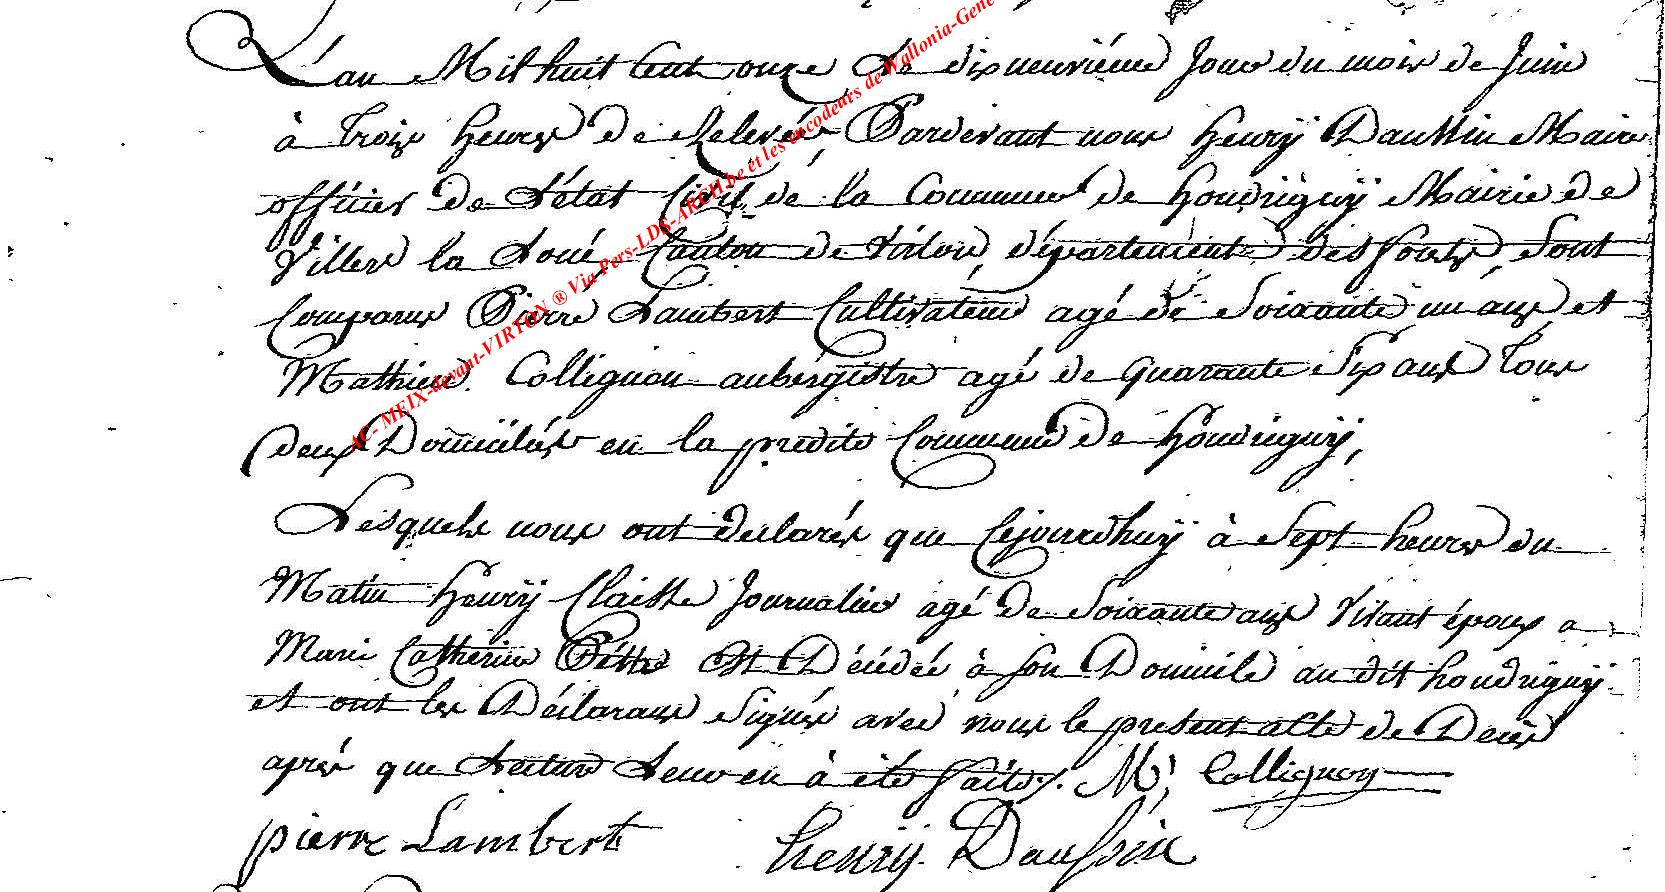 L'an Mil huit Cent onze Le dixneuviéme Jour du mois de Juin
à Trois heures de Relevée, Pardevant nous Henrÿ Daussin Maire
officier de L'état Civil de la Commune de houdrignÿ Mairie de
Villers la Loué Canton de Virton, département des forets, sont
Comparus Pierre Lambert Cultivateur agé de Soixante un ans et
Mathieu Collignon aubergistre agé de quarante Six ans Tous
deux Domiciliés en la predite Commune de houdrignÿ,
Lesquels nous ont declarés que Cejourdhuÿ à Sept heures du
Matin henrÿ Claisse Journalier agé de Soixante ans Vivant époux a
Marie Catherine est Décédé à son Domicile au dit houdrignÿ
et ont les Déclarans Signés avec nous le present acte de Decès
après que Lecture Leur en à été faite. M, Collignon
pierre Lambert henrÿ Daussin
AC- MEIX-devant-VIRTON ® Via Pers-LDS-ARCH.be et les encodeurs de Wallonia-Gene